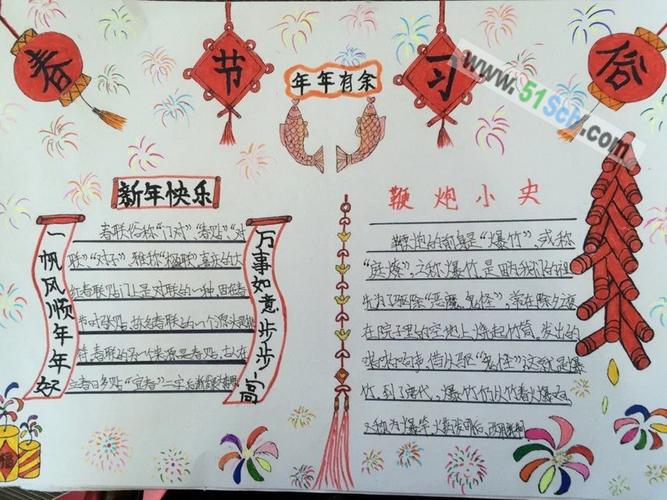 春节习俗
年年有余
www.51Sch.com
新年快乐
一帆风顺年年好
万事如意步步高
春联俗称“门对”、“春贴”、“对
联”、“对子”，雅称“楹联”
春联贴门上是对联的一种，因在春
节时张贴，故名春联的一个源头是桃
符 春联的另一个来源是春贴，古人在
立春日多贴“宜春”二字后
鞭炮小史
鞭炮的前身是“爆竹”，或称
“庭燎”，之称爆竹，是因我们的祖
先为了驱除“恶魔、鬼怪”，常在除夕夜
在院子里的空地上，烧起竹筒，发出的
响声，借以驱“鬼怪”这就是爆
竹，到了唐代，爆竹
又称为爆竿，火药
福